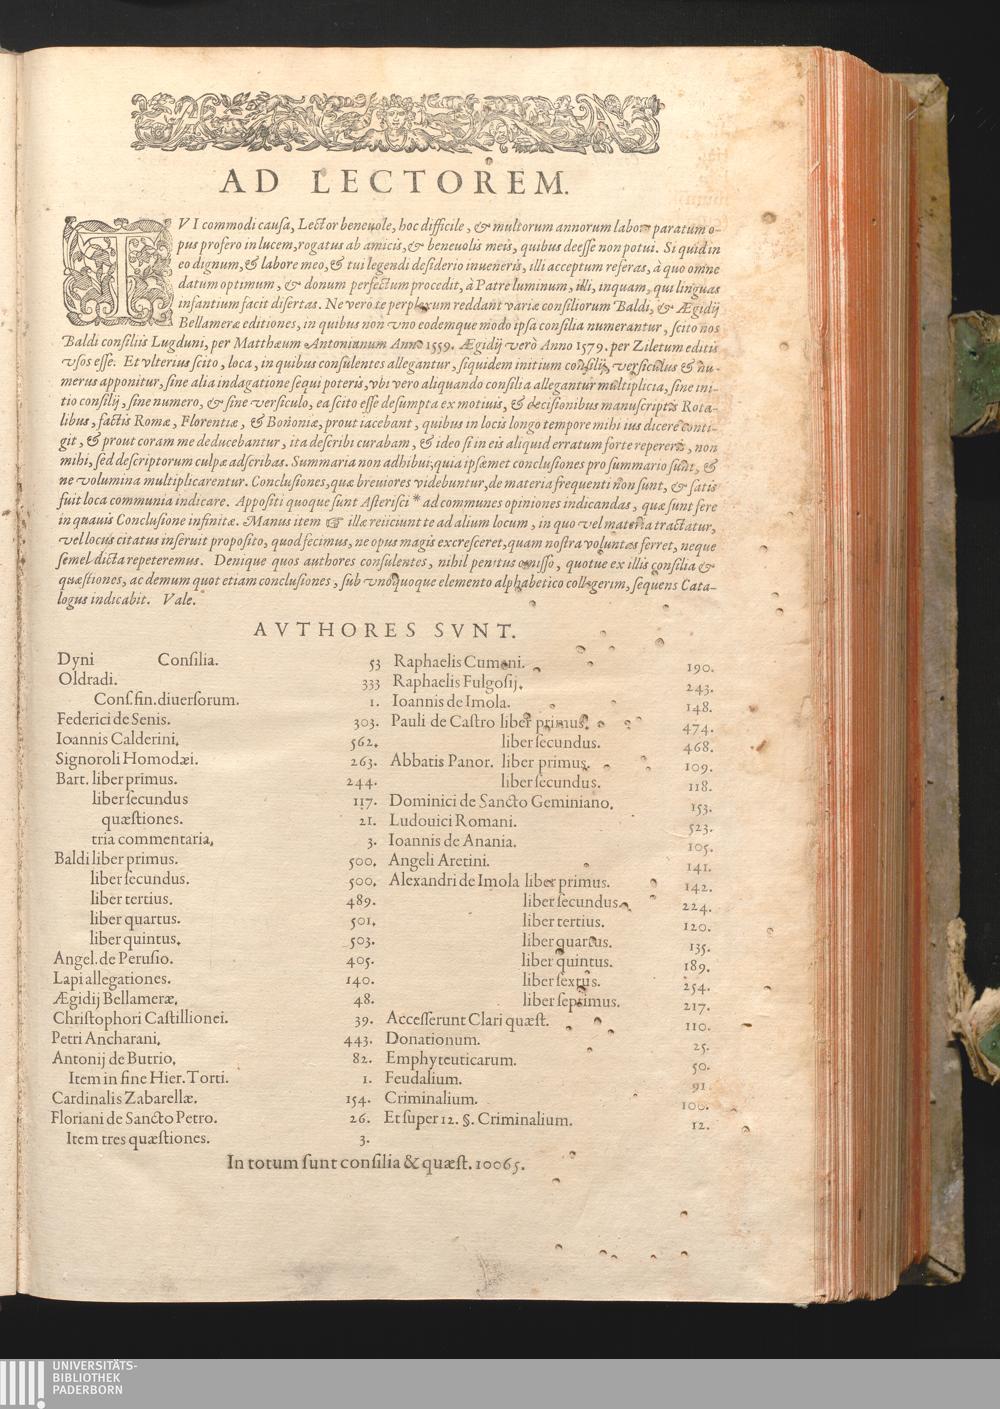 AD LECTOREM.
TVI commodi causa, Lector beneuole, hoc difficile, & multorum annorum labore paratum o-
pus profero in lucem, rogatus ab amicis, & beneuolis meis, quibus deesse non potui. Si quid in
eo dignum, & labore meo, & tui legendi desiderio inueneris, illi acceptum referas, à quo omne
datum optimum, & donum perfectum procedit, à Patre luminum, illi, inquam, qui linguas
infantium facit disertas. Ne verò te perplexum reddant variæ consiliorum Baldi, & Ægidij
Bellameræ editiones, in quibus non vno eodemque modo ipsa consilia numerantur, scito nos
Baldi consiliis Lugduni, per Matthæum Antonianum Anno 1559. Ægidij verò Anno 1579. per Ziletum editis
vsos esse. Et vlterius scito, loca, in quibus consulentes allegantur, siquidem initium consilij, versiculus & nu-
merus apponitur, sine alia indagatione sequi poteris, vbi vero aliquando consilia allegantur multiplicia, sine ini-
tio consilij, sine numero, & sine versiculo, ea scito esse desumpta ex motiuis, & decisionibus manuscriptis Rota-
libus, factis Romæ, Florentiæ, & Bononiæ, prout iacebant, quibus in locis longo tempore mihi ius dicere conti-
git, & prout coram me deducebantur, ita describi curabam, & ideo si in eis aliquid erratum forte repereris, non
mihi, sed descriptorum culpæ adscribas. Summaria non adhibui, quia ipsæmet conclusiones pro summario sunt, &
ne volumina multiplicarentur. Conclusiones, quæ breuiores videbuntur, de materia frequenti non sunt, & satis
fuit loca communia indicare. Appositi quoque sunt Asterisci * ad communes opiniones indicandas, quæ sunt fere
in quauis Conclusione infinitæ. Manus item ☞ illæ reiiciunt te ad alium locum, in quo vel materia tractatur,
vel locus citatus inseruit proposito, quod fecimus, ne opus magis excresceret, quam nostra voluntas ferret, neque
semel dicta repeteremus. Denique quos authores consulentes, nihil penitus omisso, quotue ex illis consilia &
quæstiones, ac demum quot etiam conclusiones, sub vnoquoque elemento alphabetico collegerim, sequens Cata-
logus indicabit. Vale.
AVTHORES SVNT.
Dyni Consilia. 53
Oldradi. 333
Cons. fin. diuersorum. 1.
Federici de Senis. 303.
Ioannis Calderini. 562.
Signoroli Homodæi. 263.
Bart. liber primus. 244.
liber secundus 117.
quæstiones. 21.
tria commentaria. 3.
Baldi liber primus. 500.
liber secundus. 500.
liber tertius. 489.
liber quartus. 501.
liber quintus. 503.
Angel. de Perusio. 405.
Lapi allegationes. 140.
Ægidij Bellameræ. 48.
Christophori Castillionei. 39.
Petri Ancharani. 443.
Antonij de Butrio. 82.
Item in fine Hier. Torti. 1.
Cardinalis Zabarellæ. 154.
Floriani de Sancto Petro. 26.
Item tres quæstiones. 3.
Raphaelis Cumani. 190.
Raphaelis Fulgosij. 243.
Ioannis de Imola. 148.
Pauli de Castro liber primus. 474.
liber secundus. 468.
Abbatis Panor. liber primus. 109.
liber secundus. 118.
Dominici de Sancto Geminiano. 153.
Ludouici Romani. 523.
Ioannis de Anania. 105.
Angeli Aretini. 141.
Alexandri de Imola liber primus. 142.
liber secundus. 224.
liber tertius. 120.
liber quartus. 135.
liber quintus. 189.
liber sextus. 254.
liber septimus. 217.
Accesserunt Clari quæst. 110.
Donationum. 25.
Emphyteuticarum. 50.
Feudalium. 91
Criminalium. 100.
Et super 12. §. Criminalium. 12.
In totum sunt consilia & quæst. 10065.
UNIVERSITÄTS-
BIBLIOTHEK
PADERBORN